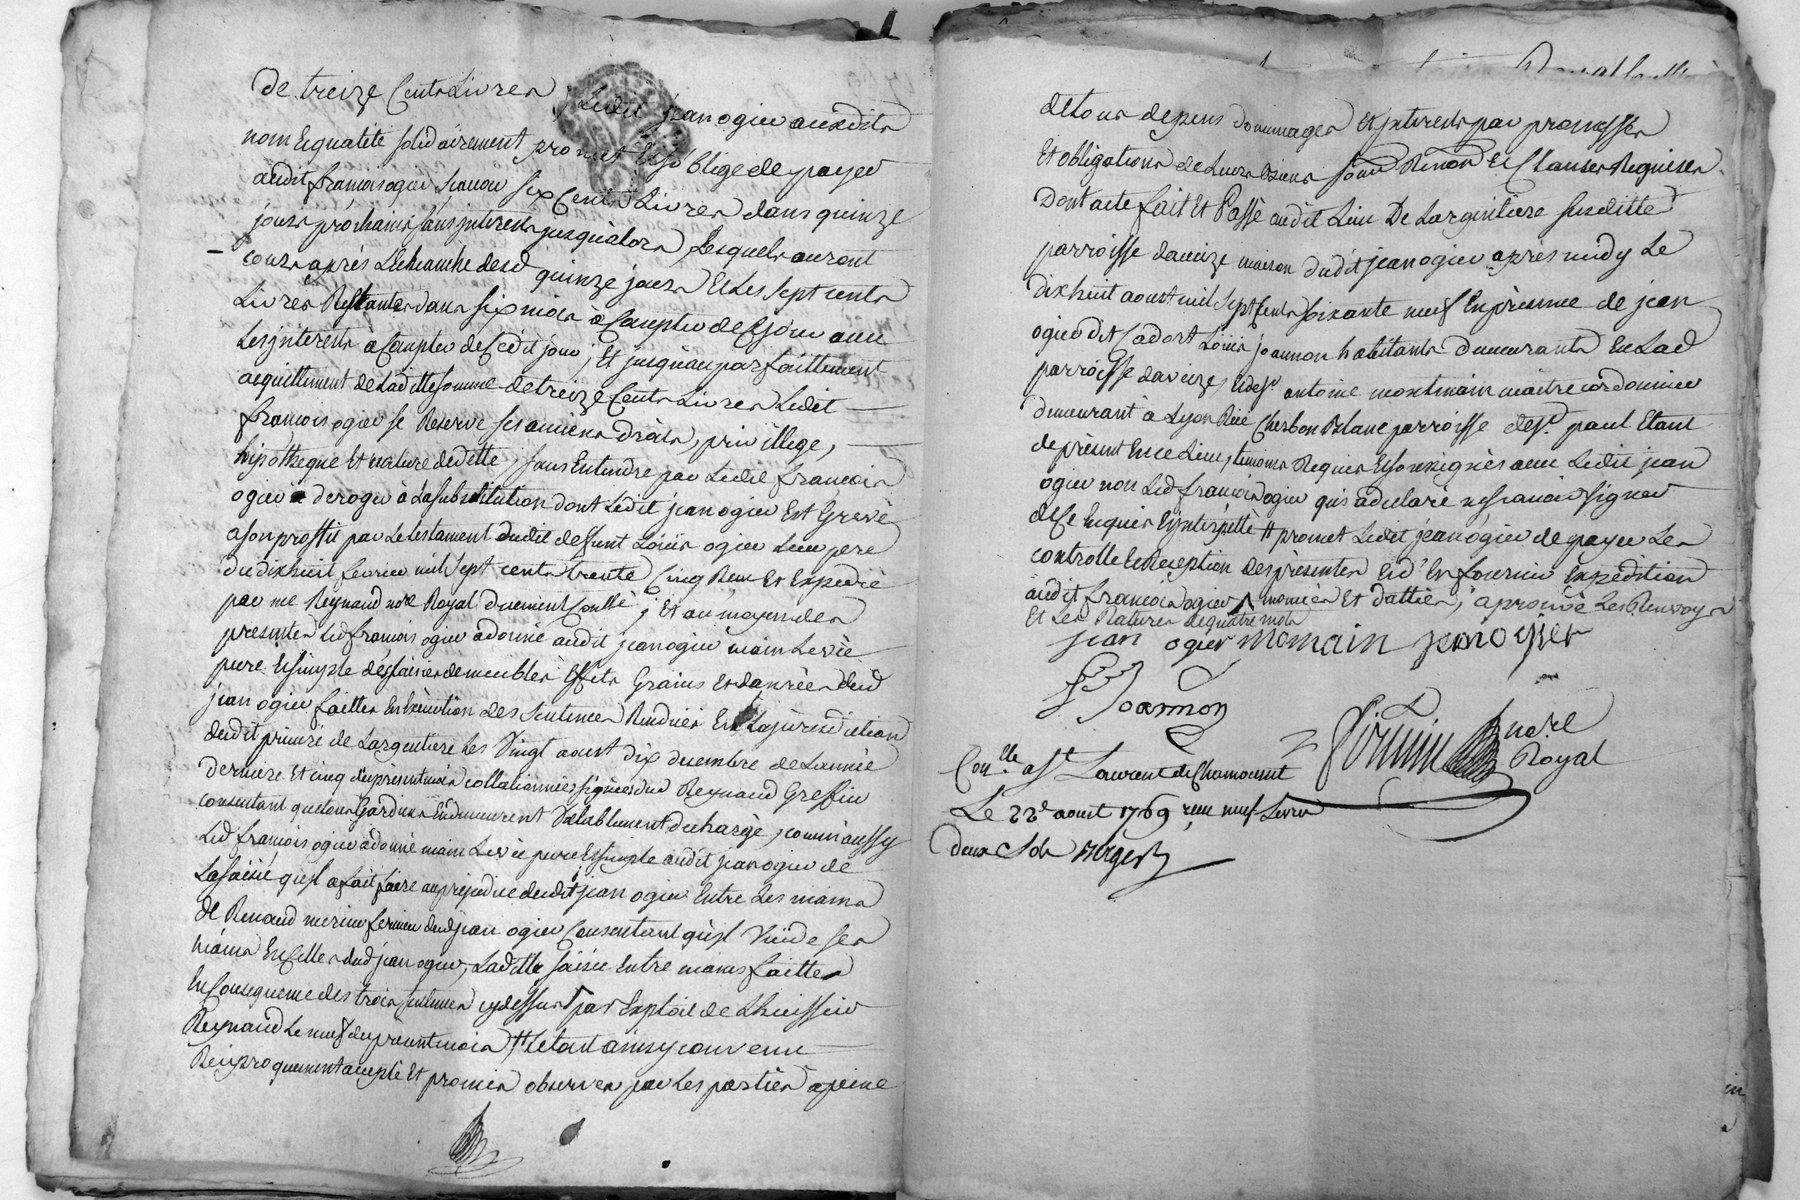 de treize Cents Livres, Ledit jean ogier auxdits
nom Equalité solidairement promet Et s'oblige de payer
audit francois ogier scavoir six Cents Livres dans quinze
jours prochains sans jnterests jusqu'alors Lesquels auront
cours après L'Echeanche desd quinze jours Et Les sept cents
Livres Restantes dans six mois à Compter de Ce jour avec
Les jnterests à Compter de Cedit jour, Et jusqu'au parfaittement
acquittement de Laditte somme de treize Cents Livres Ledit
francois ogier se Reserve ses anciens droits, privillege,
hipotheque Et nature de dette, sans Entendre par Ledit francois
ogier deroger à La substitution dont Ledit jean ogier Est Grevé
a son proffit par Le testament dudit deffunt Loüis ogier Leur pere
du dixhuit fevrier mil sept cents trente Cinq Receu Et Expedié
par me Reynaud nore Royal duement Conllé, Et au moyen des
presentes Led francois ogier a donné audit jean ogier main Levée
pure Et simple des saisies de meubles Effets Grains Et danrées dud
jean ogier faittes En Exécution des sentences Rendües En La jurisdiction
dudit prieuré de Largentiere Les Vingt aoust dix decembre de L'année
derniere Et cinq du présent mois collationnées signées dud Reynaud Greffier
consentant que tous Gardiens En demeurent Valablement dechargé, comm'aussy
Led francois ogier a donné main Levée pure Et simple audit jean ogier de
La saisie qu'il a fait faire au préjudice dudit jean ogier Entre Les mains
de Renaud merieu fermier dud jean ogier Consentant qu'il Vuide ses
mains En Celles dud jean ogier, Laditte saisie Entre mains faitte
En Consequence des trois sentences cy dessus par Exploit de L'huissier
Reynaud Le neuf du present mois, # Le tout ainsy convenu
Reciproquement accepté Et promis observer par Les parties à peine
de tous depens dommages Et jnterests par promesses
Et obligations de Leurs biens soum Renon Et Clauses Requises
Dont acte fait Et Passé audit Lieu De Largentiere susditte
parroisse daveize maison dudit jean ogier après midy Le
dixhuit aoust mil sept Cents soixante neuf En présence de jean
ogier dit Cadort Loüis joannon habitants demeurants En Lad
parroisse daveize, Et de sr antoine montmain maitre cordonnier
demeurant à Lyon Rüe Charbon Blanc parroisse de st paul Etant
de présent En ce Lieu, temoins Requis Et soussignés avec Ledit jean
ogier non Led francois ogier qui a déclaré ne scavoir signer
de Ce Enquis Et jnterpellé # promet Ledit jean ogier de payer Les
controlle Et Reception des présentes Et d'En fournir Expédition
audit francois ogier mowiés Et dattiés, aprouvé Les Renvoys
Et Les Ratures de quatre mots
jean ogier Momain jean ogier
L Joannon
nore
Royal
Conllé a St Laurent de Chamousset
Le 22e aoust 1769 reçu neuf Livres
deux sols